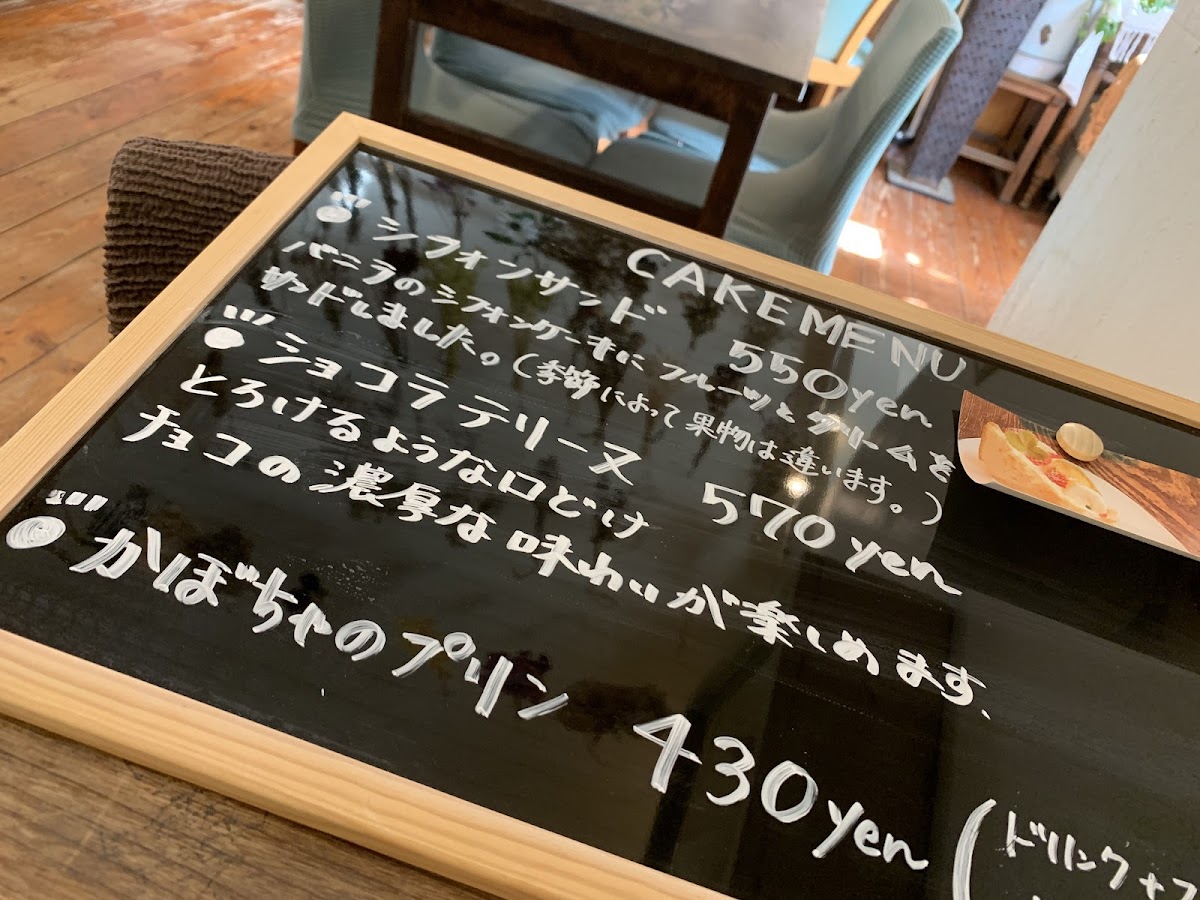 CAKE MENU
シフォンサンド 550yen
バニラのシフォンケーキに フルーツとクリームを
サンドしました。(季節によって果物は違います。)
ショコラテリーヌ 570yen
とろけるような口どけ
チョコの濃厚な味わいが楽しめます、
かぼちゃのプリン 430yen
(ドリンク+